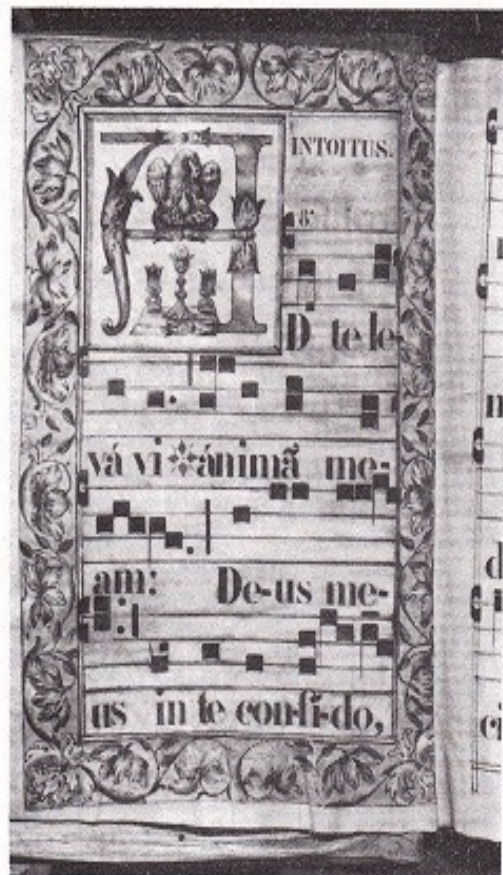 INTOITUS.
8.
AD te le-
vá vi ánimã me-
am: De-us me-
us in te con-fi-do,